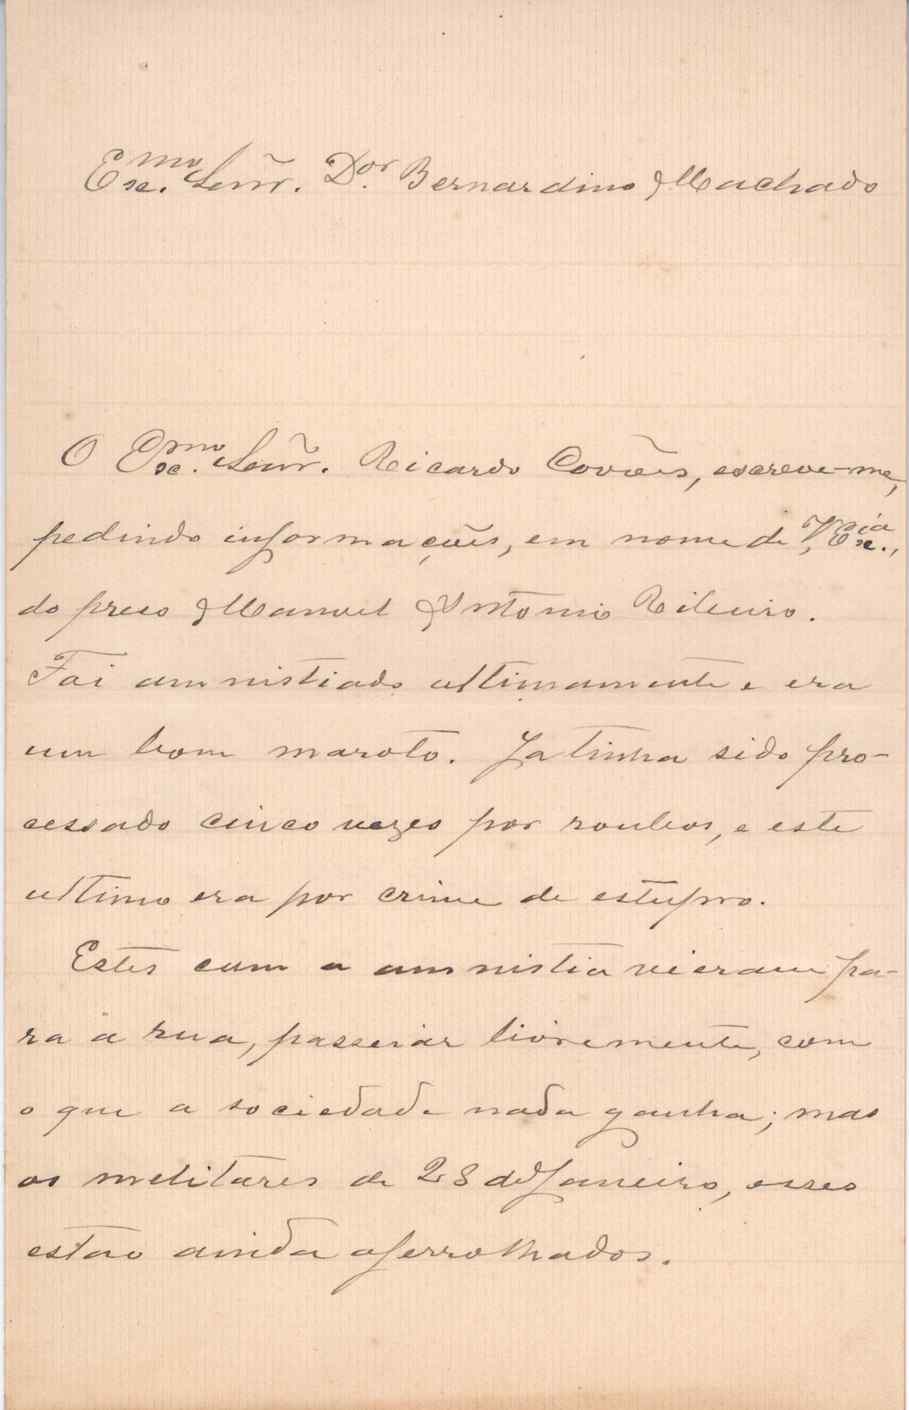 Exc.mo Senr. Dor. Bernardino Machado
O Exc.mo Senr. Ricardo Covões, escreve-me,
pedindo informações, em nome de V. Exc.ia,
do preso Manuel Antonio Ribeiro.
Foi amnistiado ultimamente e era
um bom maroto. Ja tinha sido pro-
cessado cinco vezes por roubos, e este
ultimo era por crime de estupro.
Estes com a amnistia vieram pa-
ra a rua, passeiar livremente, com
o que a sociedade nada ganha; mas
os melitares de 28 de Janeiro, esses
estão ainda aferrolhados.